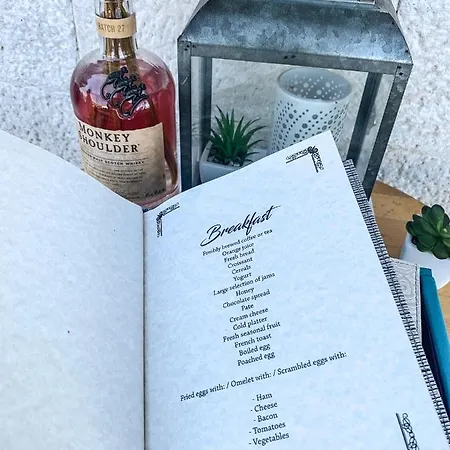 BATCH 27
MONKEY
SHOULDER
Breakfast
Freshly brewed coffee or tea
Orange juice
Fresh bread
Croissant
Cereals
Yogurt
Large selection of jams
Honey
Chocolate spread
Pate
Cream cheese
Cold platter
Fresh seasonal fruit
French toast
Boiled egg
Poached egg
Fried eggs with: / Omelet with: / Scrambled eggs with:
- Ham
- Cheese
- Bacon
- Tomatoes
- Vegetables